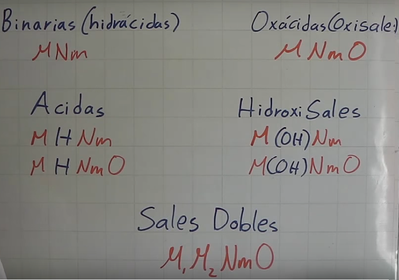 Binarias (hidrácidas)
MNm
Oxácidas (Oxisales)
MNmO
Acidas
MHNm
MHNmO
HidroxiSales
M(OH)Nm
M(OH)NmO
Sales Dobles
M₁M₂NmO